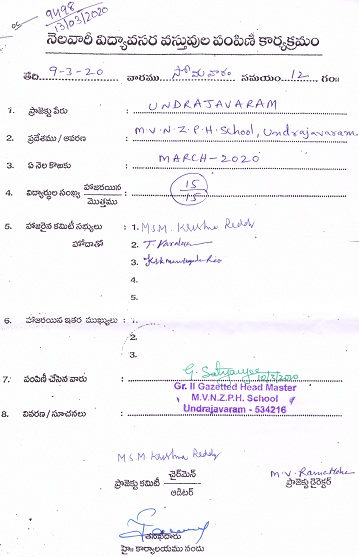 9498
13/03/2020
నెలవారీ విద్యావసర వస్తువుల పంపిణీ కార్యక్రమం
తేది 9-3-20 వారము సోమవారం సమయం 12 గం॥
1. ప్రాజెక్టు పేరు : UNDRAJAVARAM
2. ప్రదేశము / ఆవరణ : M.V.N.Z.P.H. School, Undrajavaram
3. ఏ నెల కొఱకు : MARCH-2020
4. విద్యార్థుల సంఖ్య హాజరయిన : 15
మొత్తము 15
5. హాజరైన కమిటీ సభ్యులు : 1. M.S.M. Krishna Reddy
హోదాతో 2. T
3.
4.
5.
6. హాజరయిన ఇతర ముఖ్యులు : 1.
2.
3.
7. పంపిణీ చేసిన వారు : G. 12/3/2020
Gr. II Gazetted Head Master
M.V.N.Z.P.H. School
8. వివరణ / సూచనలు : Undrajavaram - 534216
M S M Krishna Reddy
M.V.
ప్రాజెక్టు కమిటీ ఛైర్‌మెన్ ప్రాజెక్టు డైరెక్టర్
ఆడిటర్
హై॥ కార్యాలయము నందు